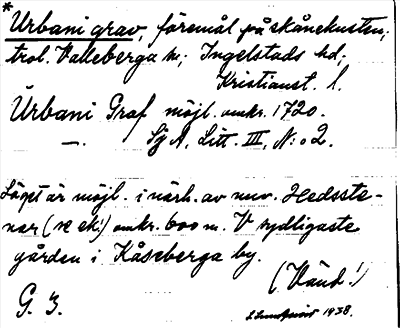 * Urbani grav, föremål på skånekusten;
trol. Valleberga sn; Ingelstads hd;
Kristianst. l.
Urbani Graf möjl. omkr. 1720.
—. Sjö A, Litt. III, N:o 2.
Läget är möjl. i närh. av nuv. Hedsste-
nar (se ek!) omkr. 600 m. V sydligaste
gården i Kåseberga by.
(Vänd!)
G. 3. 1938.